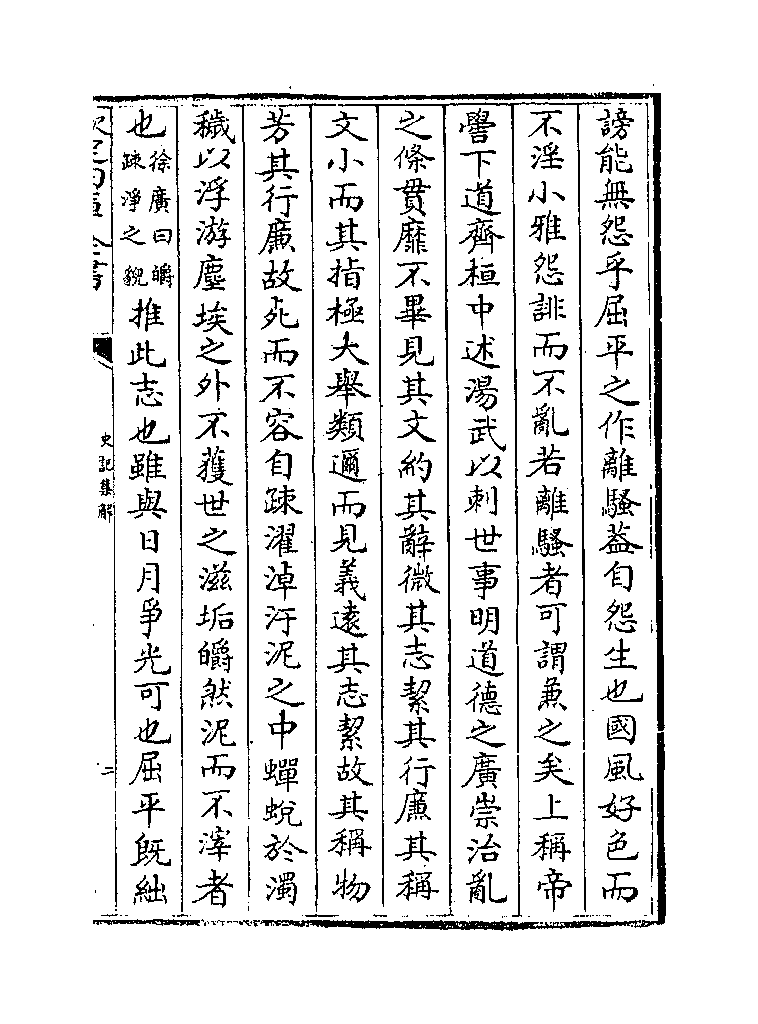 謗能無怨乎屈平之作離騷葢自怨生也國風好色而
不淫小雅怨誹而不亂若離騷者可謂兼之矣上稱帝
嚳下道齊桓中述湯武以刺世事明道德之廣崇治亂
之條貫靡不畢見其文約其辭微其志潔其行廉其稱
文小而其指極大舉類邇而見義遠其志潔故其稱物
芳其行廉故死而不容自疎濯淖汙泥之中蟬蛻於濁
穢以浮游塵埃之外不獲世之滋垢皭然泥而不滓者
也徐廣曰皭疎淨之貌推此志也雖與日月爭光可也屈平既絀
史記集解
二